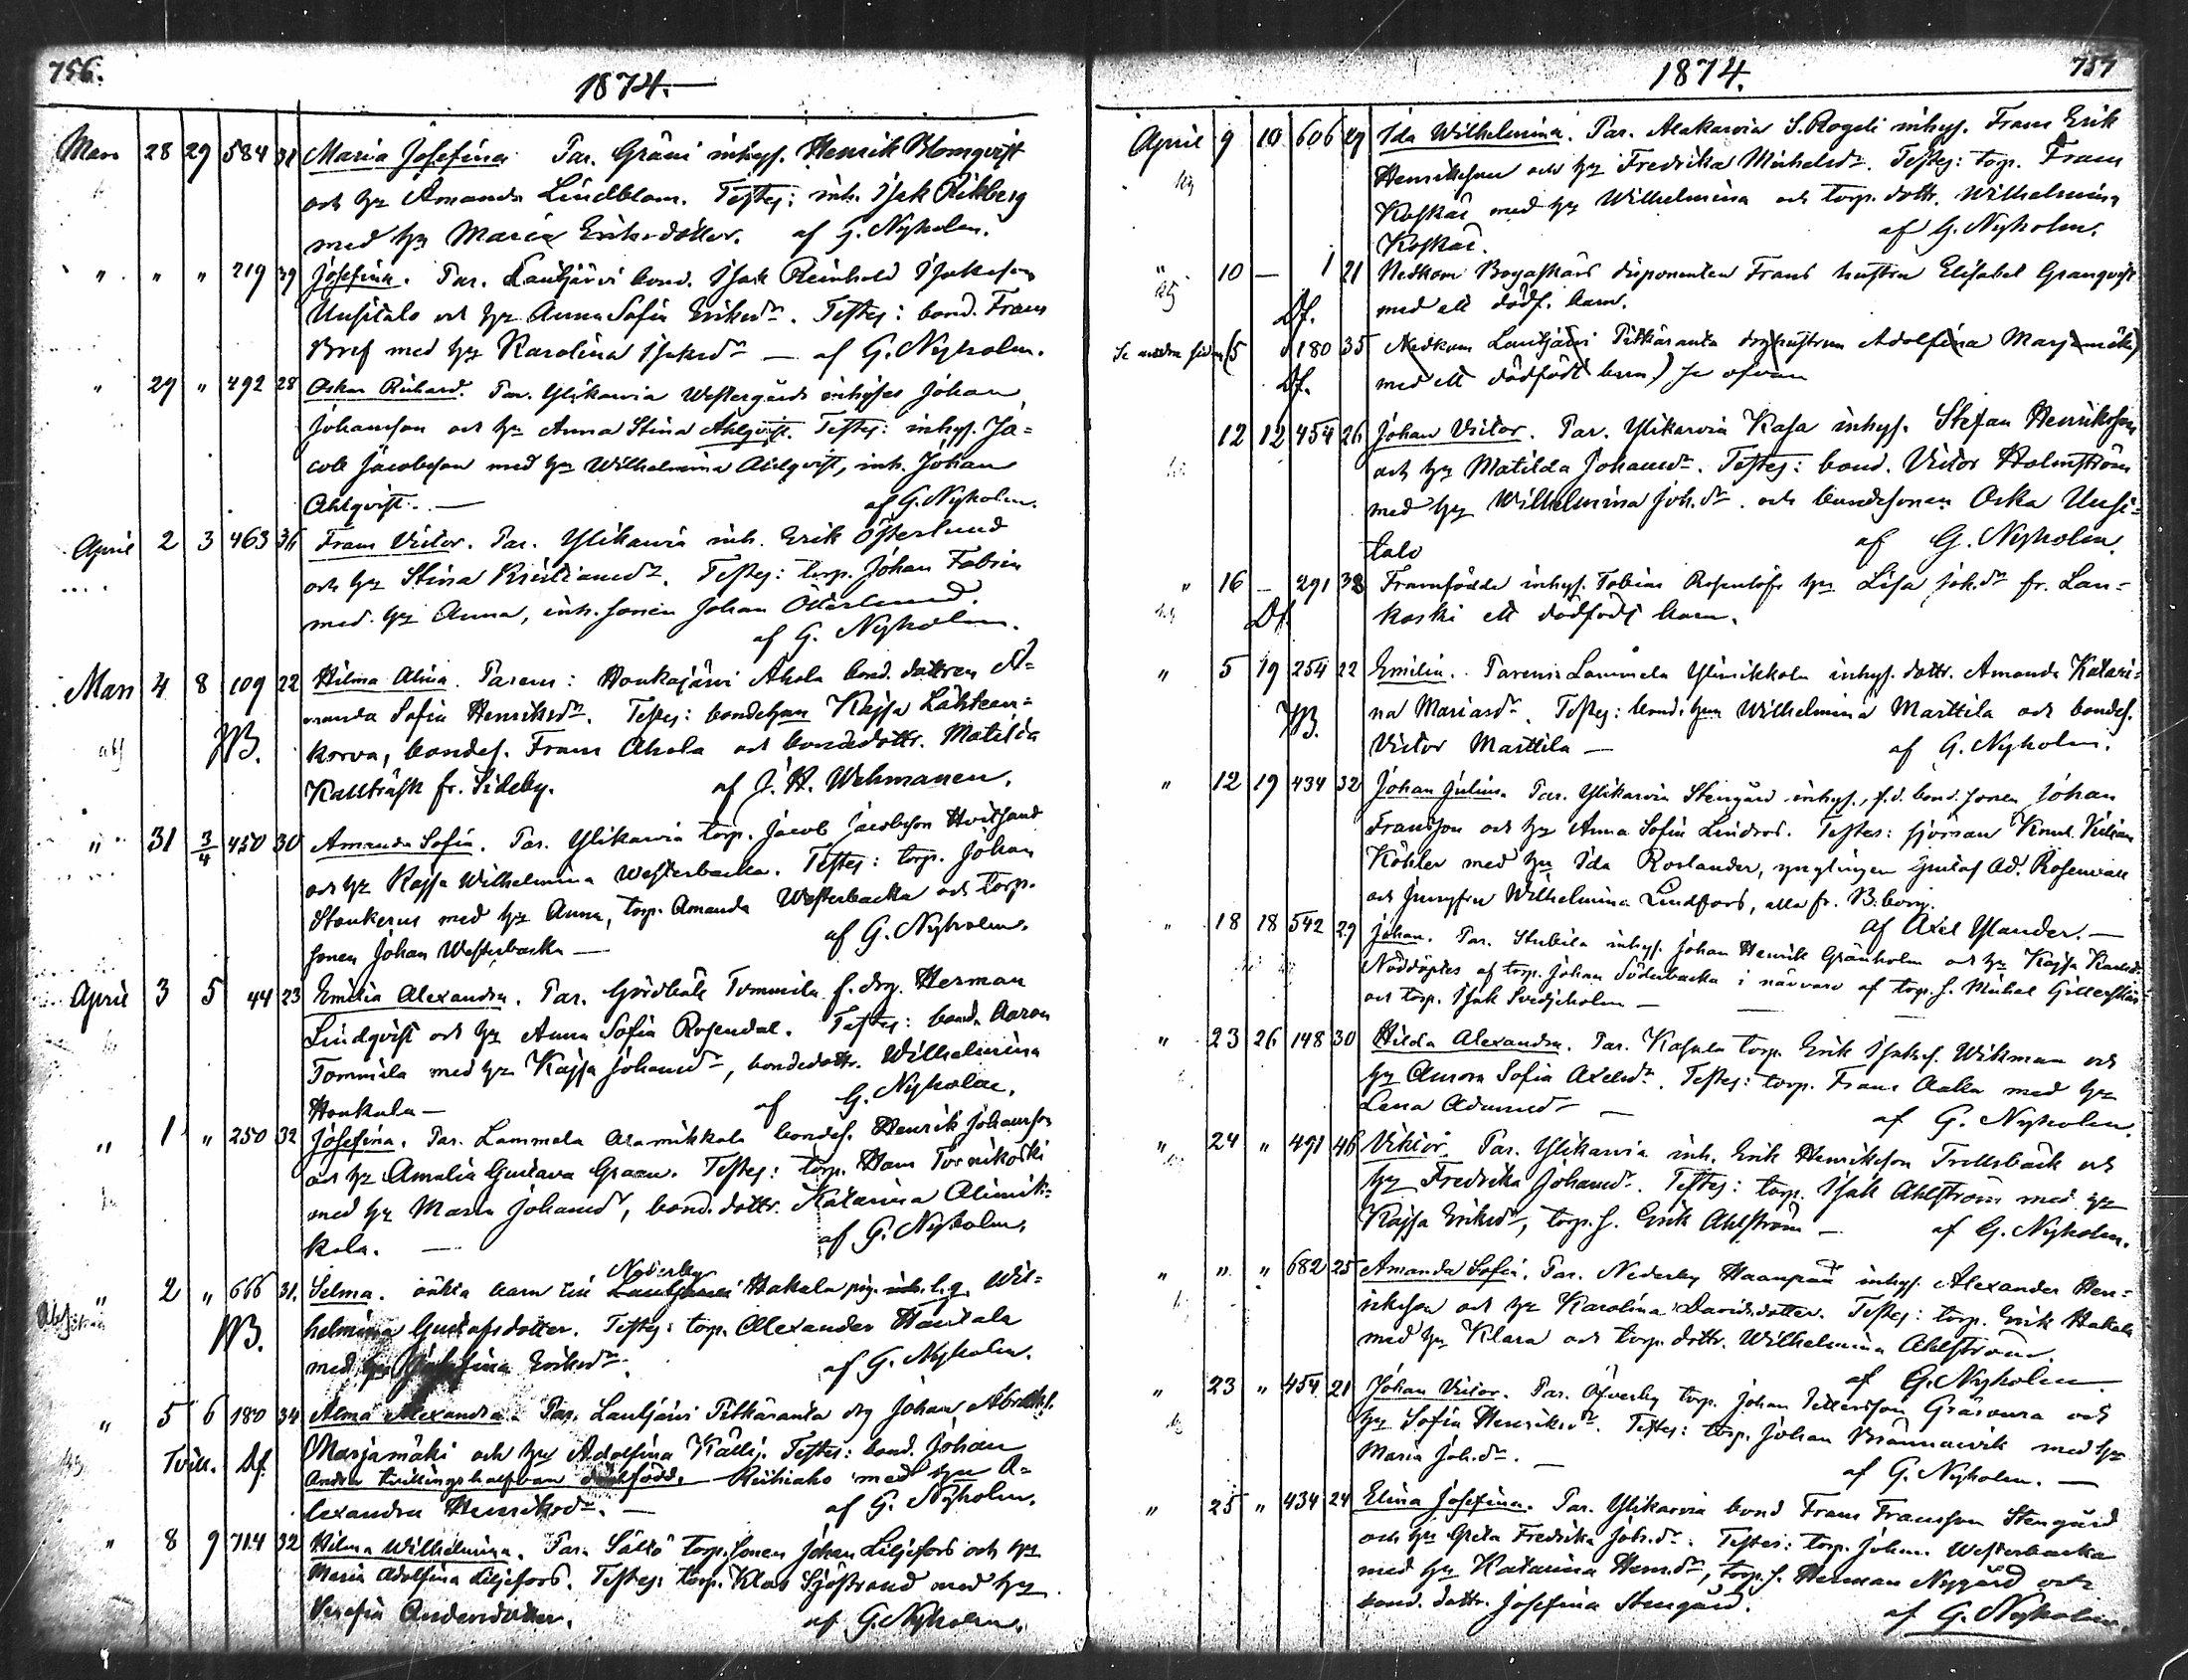 756.
1874.
Mars 28 29 584 31 Maria Josefina Par. Gräni inhys. Henrik Blomqvist
och hu Amanda Lindblom. Testes: inh. Isak Rikberg
med hu Maria Eriksdotter. af G. Nyholm.
" " " 219 39 Josefina. Par. Lautjärvi bond. Isak Reinhold Isaksson
Uusitalo och hu Anna Sofia Eriksdr. Testes: bond. Frans
Bref med hu Karolina Isaksdr — af G. Nyholm.
" 29 " 492 28 Oskar Richard. Par. Ylikarvia Westergårds inhyses Johan
Johansson och hu Anna Stina Ahlqvist. Testes: inhys. Ja=
cob Jacobsson med hu Wilhelmina Ahlqvist, inh. Johan
Ahlqvist. — af G. Nyholm.
April 2 3 463 36 Frans Victor. Par. Ylikarvia inh. Erik Österlund
och hu Stina Kristiansdr. Testes: torp. Johan Fabian
med hu Anna, inh. sonen Johan Österlund.
af G. Nyholm.
Mars 4 8 109 22 Hilma Alina. Parens: Honkajärvi Ahola bond. dottren A=
manda Sofia Henriksdr. Testes: bondehun Kajsa Lähteen=
korva, bondes. Frans Ahola och bondedottr. Matilda
Kallträsk fr. Sideby. af J. H. Wehmanen.
" 31 3/4 450 30 Amanda Sofia. Par. Ylikarvia torp. Jacob Jacobsson Hvitsand
och hu Kajsa Wilhelmina Westerbacka. Testes: torp. Johan
Stenkerus med hu Anna, torp. Amanda Westerbacka och torp.
sonen Johan Westerbacka — af G. Nyholm.
April 3 5 44 23 Emilia Alexandra. Par. Tommila f. drg. Herman
Lindqvist och hu Anna Sofia Rosendal. Testes: bond. Aaron
Tommila med hu Kajsa Johansdr, bondedottr. Wilhelmina
Honkala — af G. Nyholm.
" 1 " 250 32 Josefina. Par. Lammela Alamikkola bondes. Henrik Johansson
och hu Amalia Gustava Graan. Testes: torp. Hans Tornikoski
med hu Maria Johansd, bond. dottr. Katarina Alimik=
kola. — af G. Nyholm.
Nederby
" 2 " 666 31. Selma. oäkta barn till Lautjärvi Hakala pig. Wil=
helmina Gustafsdotter. Testes: torp. Alexander Hautala
med hu Josefina Eriksdr. af G. Nyholm.
" 5 6 180 34 Alma Alexandra. Par. Lautjärvi Pitkäranta drg Johan
Tvill. Df. Marjamäki och hu Adolfina Källi. Testes: bond. Johan
Andra tvillingshalfvan dödfödd. Riihiaho med hu A=
lexandra Henriksdr. — af G. Nyholm.
" 8 9 714 32 Hilma Wilhelmina. Par. Sältö torp. sonen Johan Liljefors och hu
Maria Adolfina Liljefors. Testes: torp. Klas Sjöstrand med hu
Serafia Andersdotter. af G. Nyholm.
1874.
757
April 9 10 606 29 Ida Wilhelmina. Par. Alakarvia S. Rogeli inhys. Frans Erik
Henriksson och hu Fredrika Michelsdr. Testes: torp. Frans
Koskas med hu Wilhelmina och torp. dottr. Wilhelmina
Koskas. af G. Nyholm.
" 10 — 1 21 Nedkom Bogaskärs disponenten Frans hustru Elisabet Granqvist
Df. med ett dödf. barn.
Se andra sidan (5 180 35 Nedkom Lautjärvi Pitkäranta drg hustrun Adolfina Marjamäki)
Df. med ett dödfödt barn.) se ofvan
12 12 454 26 Johan Victor. Par. Ylikarvia Kasa inhys. Stefan Henriksson
och hu Matilda Johansdr. Testes: bond. Victor Holmström
med hu Wilhelmina Joh.dr. och bondesonen Oska Uusi=
talo af G. Nyholm.
" 16 — 291 38 Framfödde inhys. Tobias Rosenlöfs hu Lisa Joh.dr fr. Lan=
Df koski ett dödfödt barn.
" 5 19 254 22 Emilia. Parens Lammela Ylimikkola inhys. dottr. Amanda Katari=
na Mariasdr. Testes: bond. hun Wilhelmina Marttila och bondes.
Victor Marttila — af G. Nyholm.
" 12 19 434 32 Johan Julius. Par. Ylikarvia Stengård inhys., f.d. bond. sonen Johan
Fransson och hu Anna Sofia Lindros. Testes: Knut Kilian
Köhler med hu Ida Roslander, ynglingen Gustaf Ad. Rosenvall
och Jungfru Wilhelmina Lindfors, alla fr. B:borg.
af Axel Ylander. —
" 18 18 542 29 Johan. Par. Stubila inhys. Johan Henrik Granholm och hu Kajsa
Nöddöptes af torp. Johan Söderbacka i närvaro af torp. s. Michel
och torp. Isak Svedjeholm —
" 23 26 148 30 Hilda Alexandra. Par. Kasala torp. Erik Isakss. Wikman och
hu Aurora Sofia Axelsdr. Testes: torp. Frans Aalla med hu
Lena Adamsdr — af G. Nyholm.
" 24 " 491 46 Viktor. Par. Ylikarvia inh. Erik Henriksson Trollsbäck och
hu Fredrika Johansdr. Testes: torp. Isak Ahlström med hu
Kajsa Eriksdr, torp. s. Erik Ahlström — af G. Nyholm.
" " " 682 25 Amanda Sofia. Par. Nederby Haanpää inhys. Alexander Hen=
riksson och hu Karolina Davidsdotter. Testes: torp. Erik Hakala
med hu Klara och torp. dottr. Wilhelmina Ahlström.
af G. Nyholm.
" 23 " 454 21 Johan Victor. Par. Öfverby torp. Johan Pettersson Gräsoura och
hu Sofia Henriksdr. Testes: torp. Johan Brännarvik med hu
Maria Joh.dr. — af G. Nyholm. —
" 25 " 434 24 Elina Josefina. Par. Ylikarvia bond Frans Fransson Stengård
och hu Greta Fredrika Joh.dr. Testes: torp. Johan Westerbacka
med hu Katarina Hens.dr, torp. s. Herman Nygård och
bond. dottr. Josefina Stengård. af G. Nyholm.